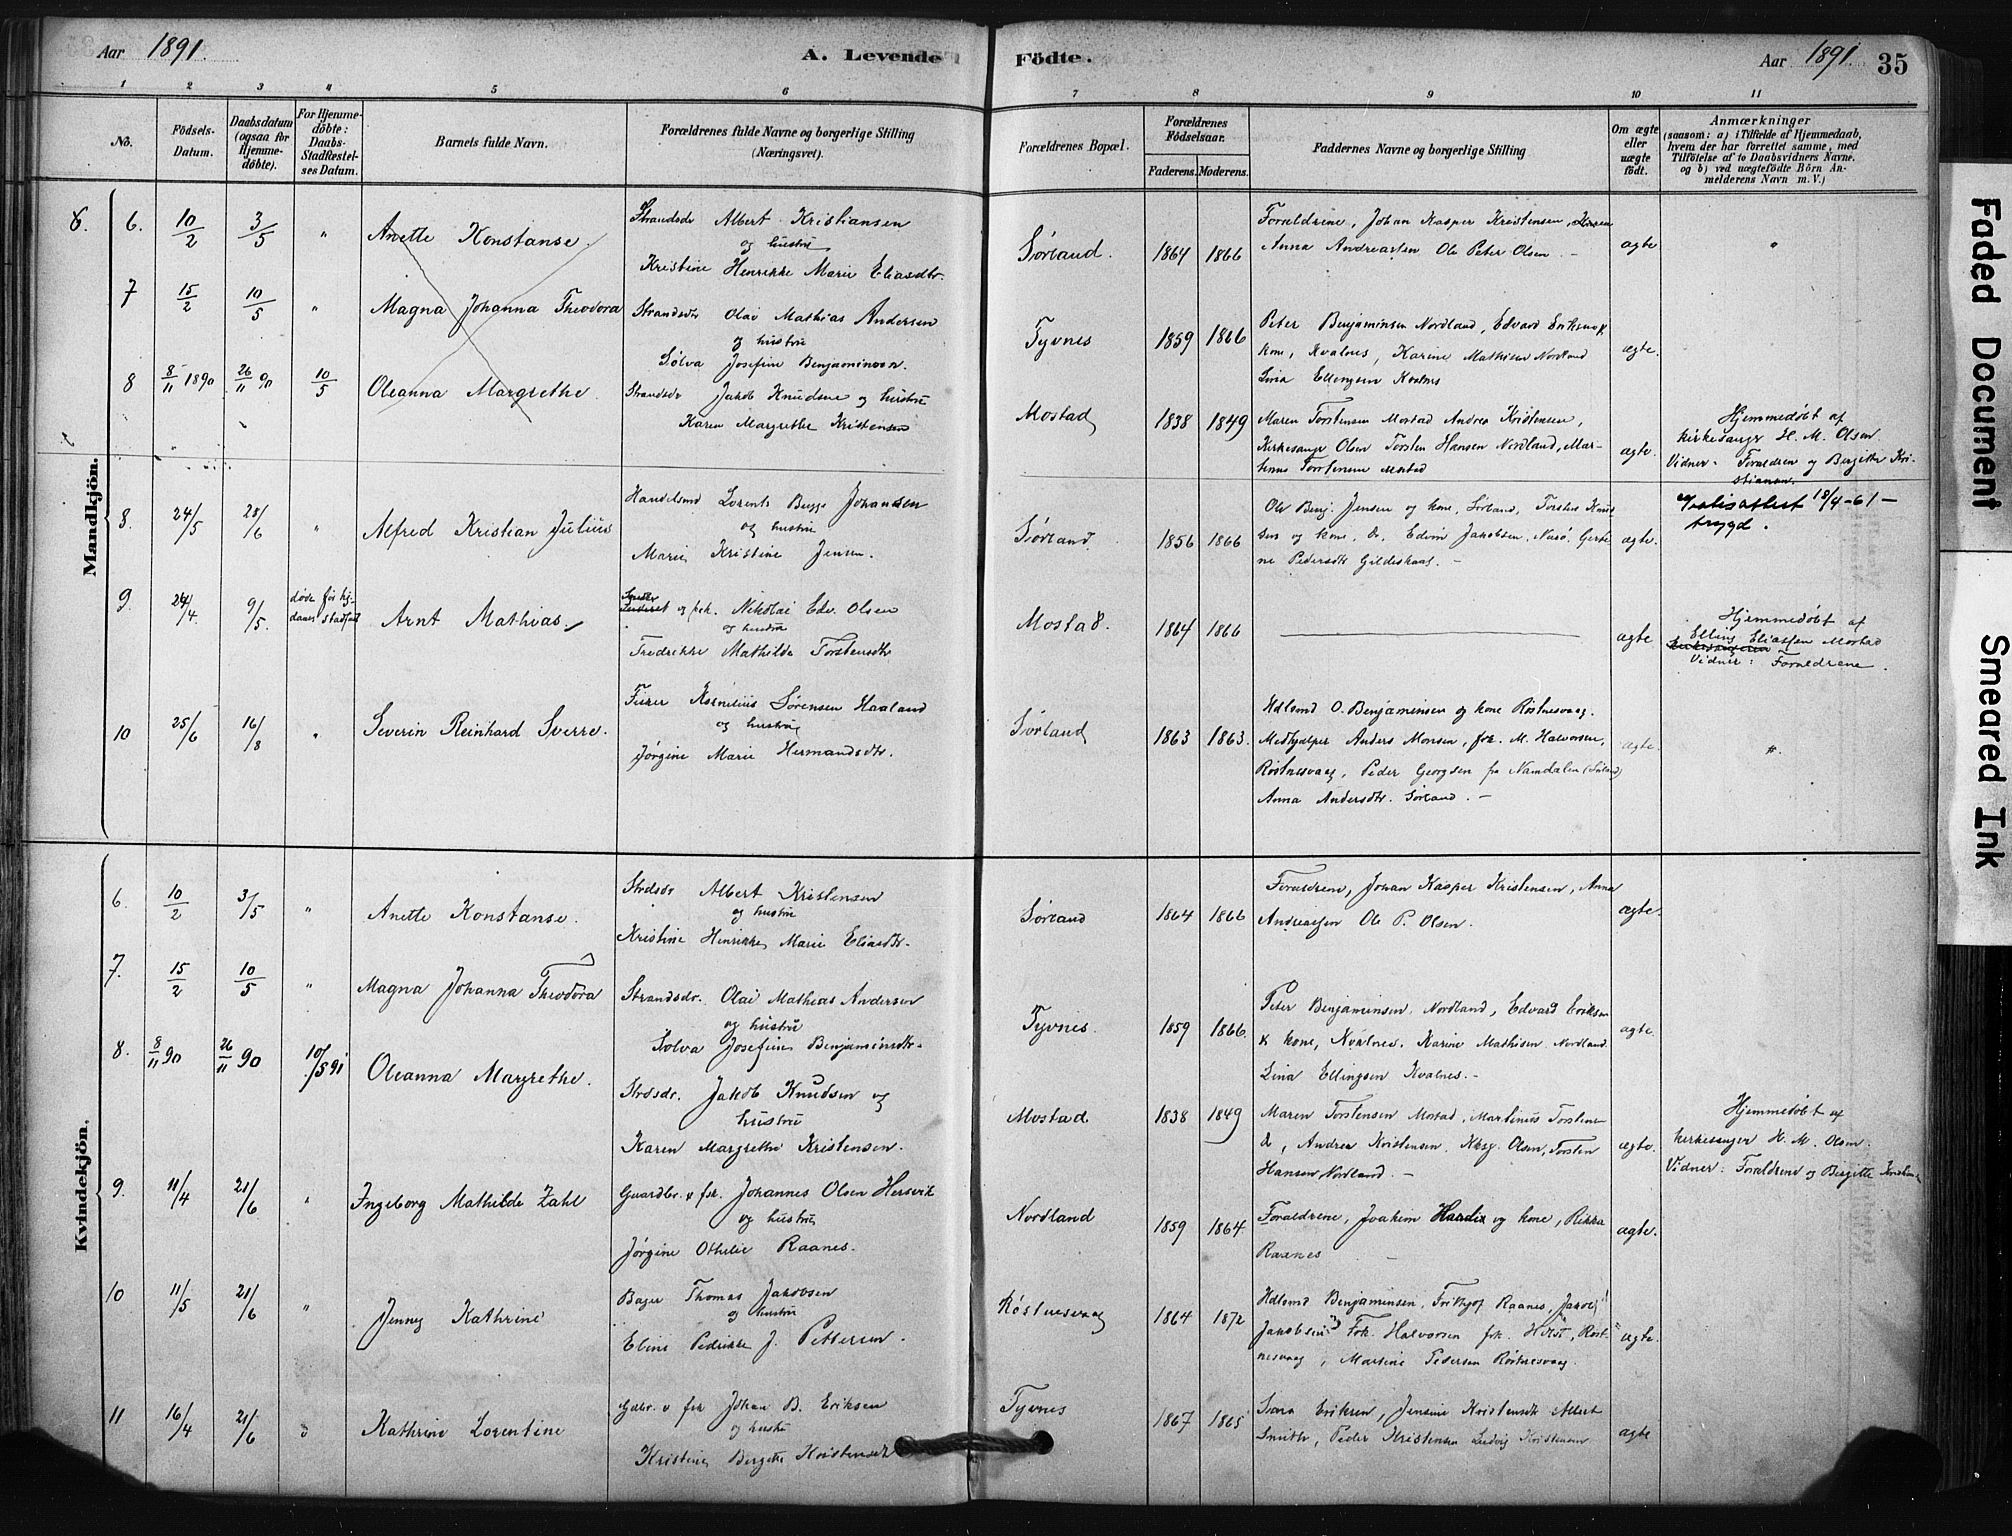 Aar 1891.
A. Levende Födte.
Aar 1891. 35
1 2 3 4 5 6 7 8 9 10 11
No.
Födsels-Datum.
Daabsdatum (ogsaa for Hjemme-döbte).
For Hjemme-döbte: Daabs-Stadfæstel-ses Datum.
Barnets fulde Navn.
Forældrenes fulde Navne og borgerlige Stilling (Næringsvei).
Forældrenes Bopæl.
Forældrenes Födselsaar.
Faderens. Moderens.
Faddernes Navne og borgerlige Stilling
Om ægte eller uægte födt.
Anmærkninger
(saasom: a) i Tilfælde af Hjemmedaab,
hvem der har forrettet samme, med
Tilföielse af to Daabsvidners Navne.
og b) ved uægtefödte Börn An-
melderens Navn m. V.)
Mandkjön.
6. 10/2 3/5 " Anette Konstanse.
Strandsdr Albert Kristiansen
og hustru
Kristine Henrikke Marie Eliasdtr.
Sørland. 1864 1866
Forældrene, Johan Kasper Kristensen,
Anna Andreassen Ole Peter Olsen. –
ægte "
7 15/2 10/5 " Magna Johanna Theodora
Strandsdr Olai Mathias Andersen
og hustru
Sølva Josefine
Tyvnes 1859 1866
Peter Benjaminsen Nordland, Edvard Eriksen &
kone, Kvalnes, Karine Mathisen Nordland
Lina Ellingsen Kvalnes
ægte.
8 8/11 1890 26/11 90 10/5 Oleanna Margrethe.
Strandsdr Jakob Knudsen og hustru
Karen Margrethe Kristensen
Mostad 1838 1849
Maren Torstensen Mostad Andrea Kristensen,
Kirkesanger Olsen Torsten Hansen Nordland, Mar-
tinus Torstensen Mostad
ægte.
Hjemmedøbt af
kirkesanger H. M. Olsen
Vidner: Forældren og Bergitte Kri-
stiansen.
8. 24/5 28/6 " Alfred Kristian Julius
Handelsmd Lorents Bugge Johansen
og hustru
Marie Kristine Jensen.
Sørland. 1856 1866
Ole Benj. Jensen og kone, Sørland, Torsten Knud
sen og kone, Do, Edvin Jakobsen,
ne Pedersdtr Gildeskaal. –
ægte.
18/4–61 –
trygd.
9. 24/4 9/5 døde før hj-
daabs stadfæst
Arnt Mathias.
og fsk. Nikolai Edv. Olsen
og hustru
Fredrikke Mathilde Torstensdtr
Mostad. 1864 1866
ægte
Hjemmedøbt af
Elling Eliassen Mostad
Vidner: Forældrene.
10 25/6 16/8 " Severin Reinhard Sverre.
Fisker Kornelius Sørensen Haaland
og hustru
Jørgine Marie Hermandsdtr.
Sørland 1863 1863.
Hdlsmd O. Benjaminsen og kone Røstnesvaag.
Medhjælper Anders Monsen, frk. M. Halvorsen,
Røstnesvaag, Peder Georgsen fra Namdalen (Sørland)
Anna Andersdtr. Sørland. –
ægte. "
Kvindekjön.
6. 10/2 3/5 " Anette Konstanse.
Strdsdr Albert Kristensen
og hustru
Kristine Henrikke Marie Eliasdtr.
Sørland 1864 1866
Forældrene, Johan Kasper Kristensen, Anna
Andreassen Ole P. Olsen.
ægte.
7. 15/2 10/5 " Magna Johanna Theodora
Strandsdr. Olai Mathias Andersen
og hustru
Sølva Josefine Benjaminsdtr.
Tyvnes. 1859 1866.
Peter Benjaminsen Nordland, Edvard Eriksen
& kone, Kvalnes. Karine Mathisen Nordland.
Lina Ellingsen Kvalnes. –
ægte
8. 8/11 90 26/11 90 10/5 91 Oleanna Margrethe.
Strdsdr. Jakob Knudsen og
hustru
Karen Margrethe Kristensen.
Mostad 1838 1849
Maren Torstensen Mostad, Martinus Torstens
Do, Andrea Kristensen, Olsen, Torsten
Hansen Nordland. –
ægte.
Hjemmedøbt af
kirkesanger H. M. Olsen.
Vidner: Forældrene og Bergitte
9. 11/4 21/6 " Ingeborg Mathilde Zahl
Gaardbr. & fsk. Johannes Olsen Hersvik
og hustru
Jørgine Othelie Raanes.
Nordland 1859 1864.
Forældrene, Joakim og kone, Rikka
Raanes –
ægte.
10 11/5 21/6 " Jenney Kathrine
Bager Thomas Jakobsen
og hustru
Eline Pedrikke J. Pettersen.
Røstnesvaag 1864 1872
Hdlsmd Benjaminsen, Frithjof Raanes, Jakob
Jakobsen Frk. Halvorsen frk. Holst, Røst-
nesvaag, Martine Pedersen Røstnesvaag.
ægte.
11 16/4 21/6 Kathrine Lorentine
Gdbr. & fsk Johan B. Eriksen
og hustru
Kristine Bergitte Kristensdtr
Tyvnes 1867 1865
Sara Eriksen, Jensine Kristensdtr Albert
Smith, Peder Kristensen Ludvig Kristensen
ægte
Faded Document
Smeared Ink